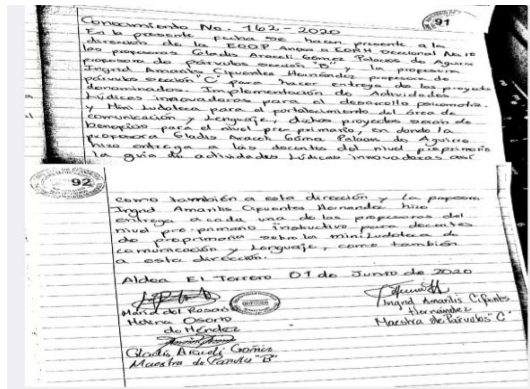 91
Conocimiento No. 162-2020
En la presente fecha se hacen presente a la
dirección de la EODP Anexa a EORM
las profesoras Gladis Araceli Gómez Palacios de Aguirre
profesora de párvulos sección "B" y la profesora
Ingrid Amarilis Cifuentes Hernández profesora de
párvulos sección "C" para hacer entrega de los proyectos
denominados. Implementación de Actividades
Lúdicas innovadoras para el desarrollo psicomotriz.
y Mini Ludoteca para el fortalecimiento del área de
comunicación y Lenguaje, dichos proyectos serán de
beneficio para el nivel pre primario, en donde la
profesora Gladis Araceli Gómez Palacios de Aguirre
hizo entrega a las docentes del nivel preprimario
la guía de actividades Lúdicas innovadoras así
92
como también a esta dirección y la profesora
Ingrid Amarilis Cifuentes Hernández hizo
entrega a cada una de las profesoras del
nivel pre-primario instructivo para docentes
de preprimaria sobre la mini Ludoteca de
comunicación y Lenguaje, como también
a esta dirección.
Aldea El Terrero 01 de Junio de 2020
María del Rosario
Osorio
de Méndez
Ingrid Amarilis Cifuentes
Hernández
Maestra de Párvulos "C"
Gladis Araceli Gómez
Maestra de Párvulos "B"